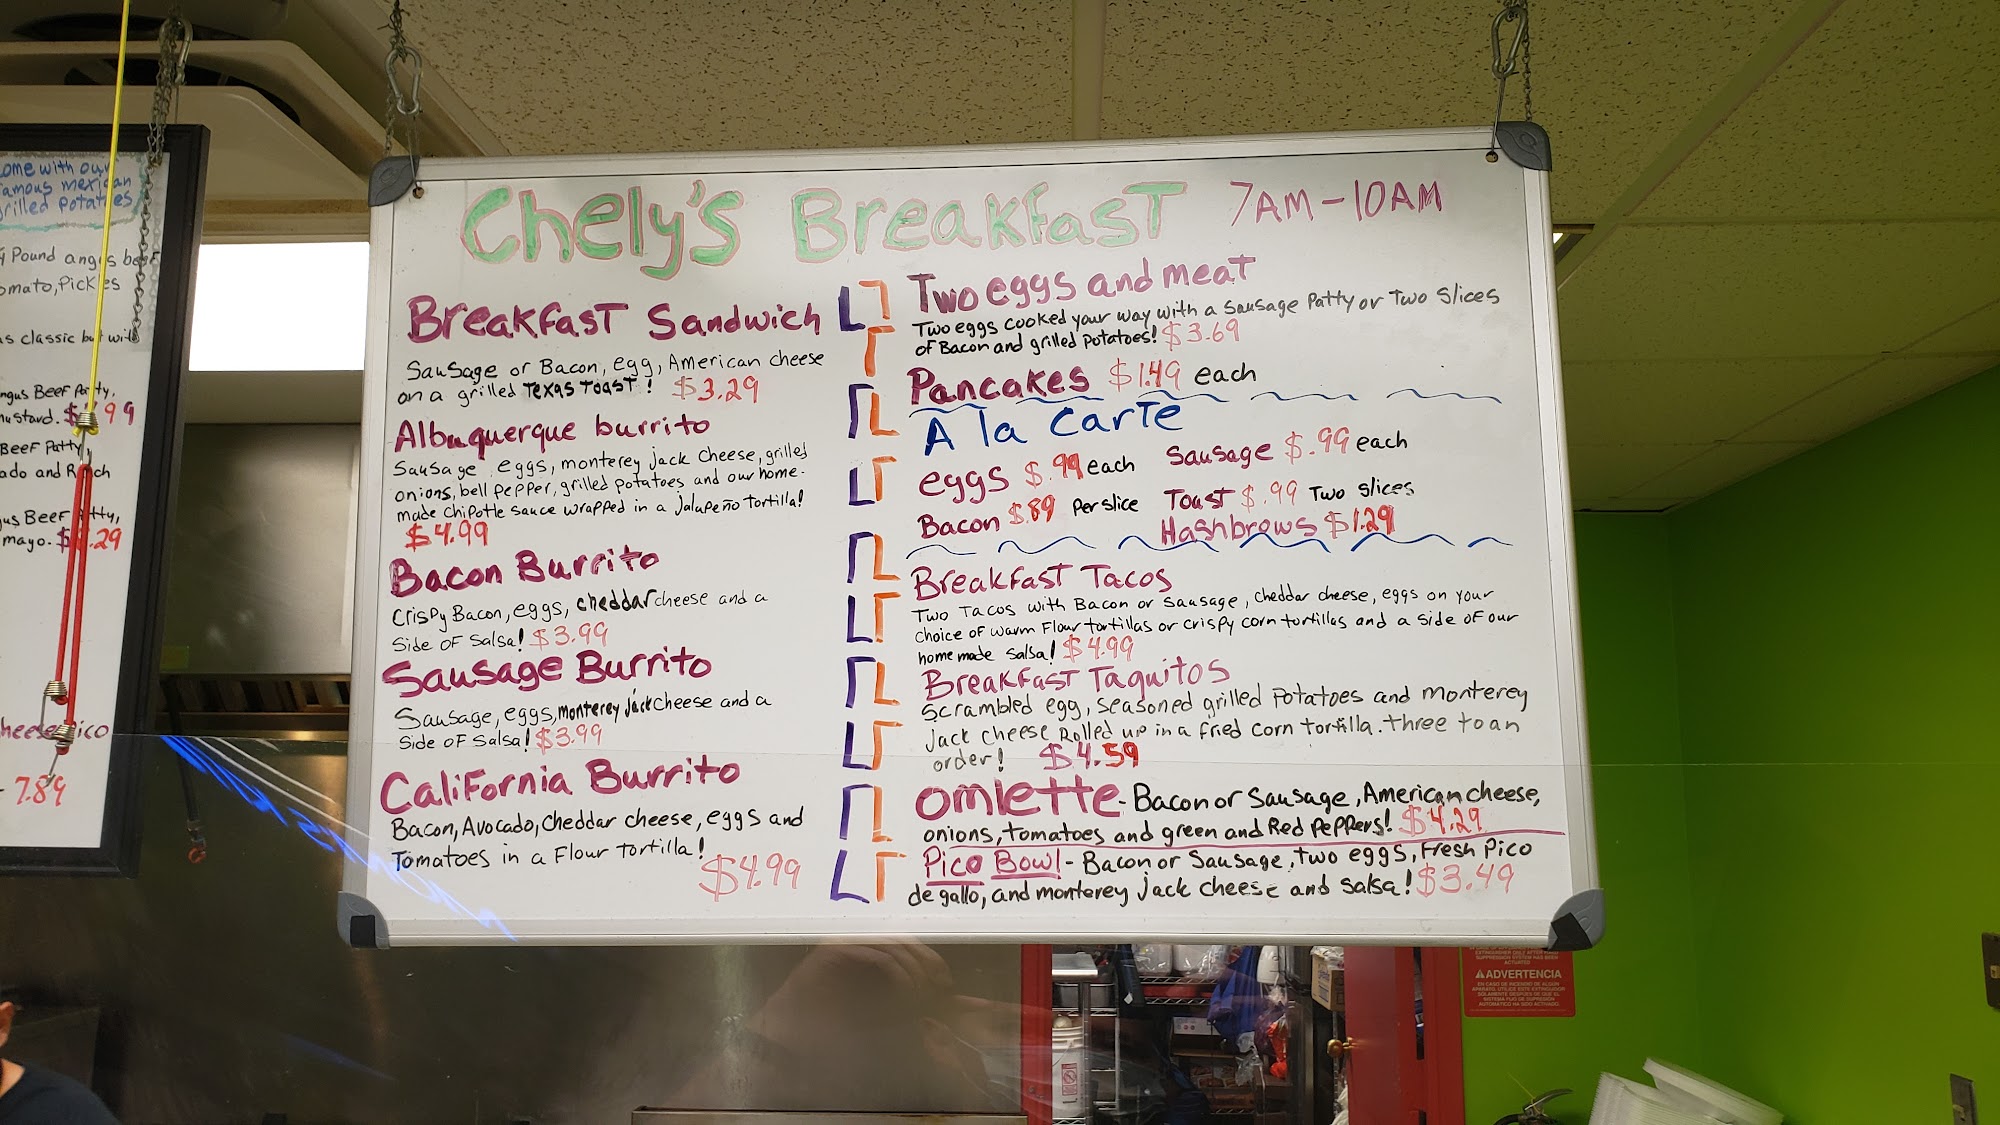 ome with our
famous mexican
grilled potatoes
Pound angus beef
omato, Pickles
as classic but with
ngus Beef Patty,
mustard.
Beef Patty,
ado and Ranch
gus Beef Patty,
mayo.
cheese Pico
7.89
Chely's Breakfast 7AM-10AM
Breakfast Sandwich
Sausage or Bacon, egg, American cheese
on a grilled TEXAS TOAST! $3.29
Albuquerque burrito
Sausage eggs, monterey jack cheese, grilled
onions, bell pepper, grilled potatoes and our home-
made chipotle sauce wrapped in a jalapeño tortilla!
$4.99
Bacon Burrito
Crispy Bacon, eggs, cheddar cheese and a
side of salsa! $3.99
Sausage Burrito
Sausage, eggs, monterey jack cheese and a
side of salsa! $3.99
California Burrito
Bacon, Avocado, cheddar cheese, eggs and
Tomatoes in a Flour tortilla!
$4.99
Two eggs and meat
Two eggs cooked your way with a sausage Patty or Two slices
of Bacon and grilled potatoes! $3.69
Pancakes $1.49 each
A la carte
eggs $.99 each Sausage $.99 each
Bacon $.89 per slice Toast $.99 Two slices
Hashbrows $1.29
Breakfast Tacos
Two Tacos with Bacon or sausage, cheddar cheese, eggs on your
choice of warm Flour tortillas or crispy corn tortillas and a side of our
home made salsa! $4.99
Breakfast Taquitos
Scrambled egg, seasoned grilled potatoes and monterey
jack cheese Rolled up in a fried corn tortilla. three to an
order! $4.59
omlette - Bacon or Sausage, American cheese,
onions, tomatoes and green and Red peppers! $4.29
Pico Bowl - Bacon or Sausage, two eggs, fresh Pico
de gallo, and monterey jack cheese and salsa! $3.49
ADVERTENCIA
EN CASO DE INCENDIO DE ALGUN
APARATO, UTILICE ESTE EXTINGUIDOR
SOLAMENTE DESPUES DE QUE EL
SISTEMA FIJO DE SUPRESION
AUTOMATICO HA SIDO ACTIVADO.